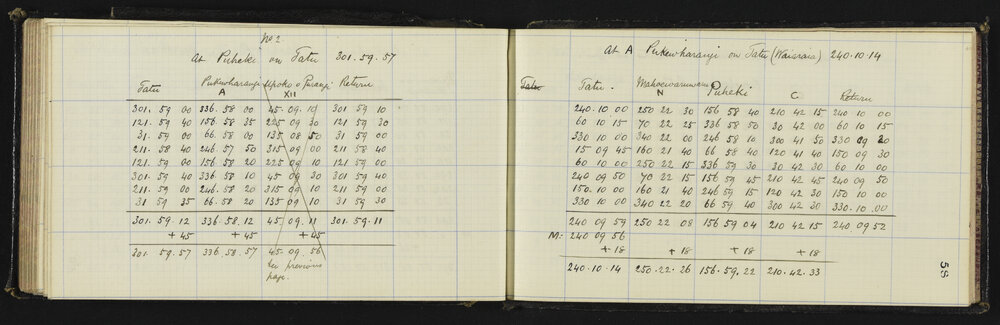 No 2
At Puheki on Tatu 301.59.57
Tatu Pukewharangi Upoko o Puranji Return
A XII
301. 59 00 336. 58 00 45. 09. 10 301 59 10
121. 59 40 156 58 35 225 09 30 121 59 30
31. 59 00 66. 58 00 135 08 50 31 59 00
211. 58 40 246. 57 50 315 09 00 211 58 40
121. 59 00 156 58 20 225 09 10 121. 59 00
301. 59 40 336. 58 10 45 09 30 301 59 40
211. 59 00 246. 58 20 315 09 10 211 59 00
31 59 35 66. 58 20 135 09 10 31 59 30
301. 59. 12 336. 58. 12 45. 09. 11 301. 59. 11
+ 45 + 45 + 45
301. 59. 57 336. 58. 57 45. 09. 56
See previous
page.
At A Pukewharangi on Tatu (Wairaia) 240.10.14
Tatu Tatu. Puheki Return
N C
240. 10 00 250 22 30 156 58 40 210 42 15 240 10 00
60 10 15 70 22 25 336 58 50 30 42 00 60 10 15
330 10 00 340 22 00 246 58 10 300 41 50 330 09 20
15 09 45 160 21 40 66 58 40 120 41 40 150 09 30
60 10 00 250 22 15 336 59 30 30 42 30 60 10 00
240 09 50 70 22 15 156 59 45 210 42 45 240 09 50
150. 10 00 160 21 40 246 59 15 120 42 30 150 10 00
330 10 00 340 22 20 66 59 40 300 42 30 330. 10. 00
240 09 59 250 22 08 156 59 04 210 42 15 240 09 52
M: 240 09 56
+ 18 + 18 + 18 + 18
240. 10. 14 250. 22. 26 156. 59. 22 210. 42. 33
58